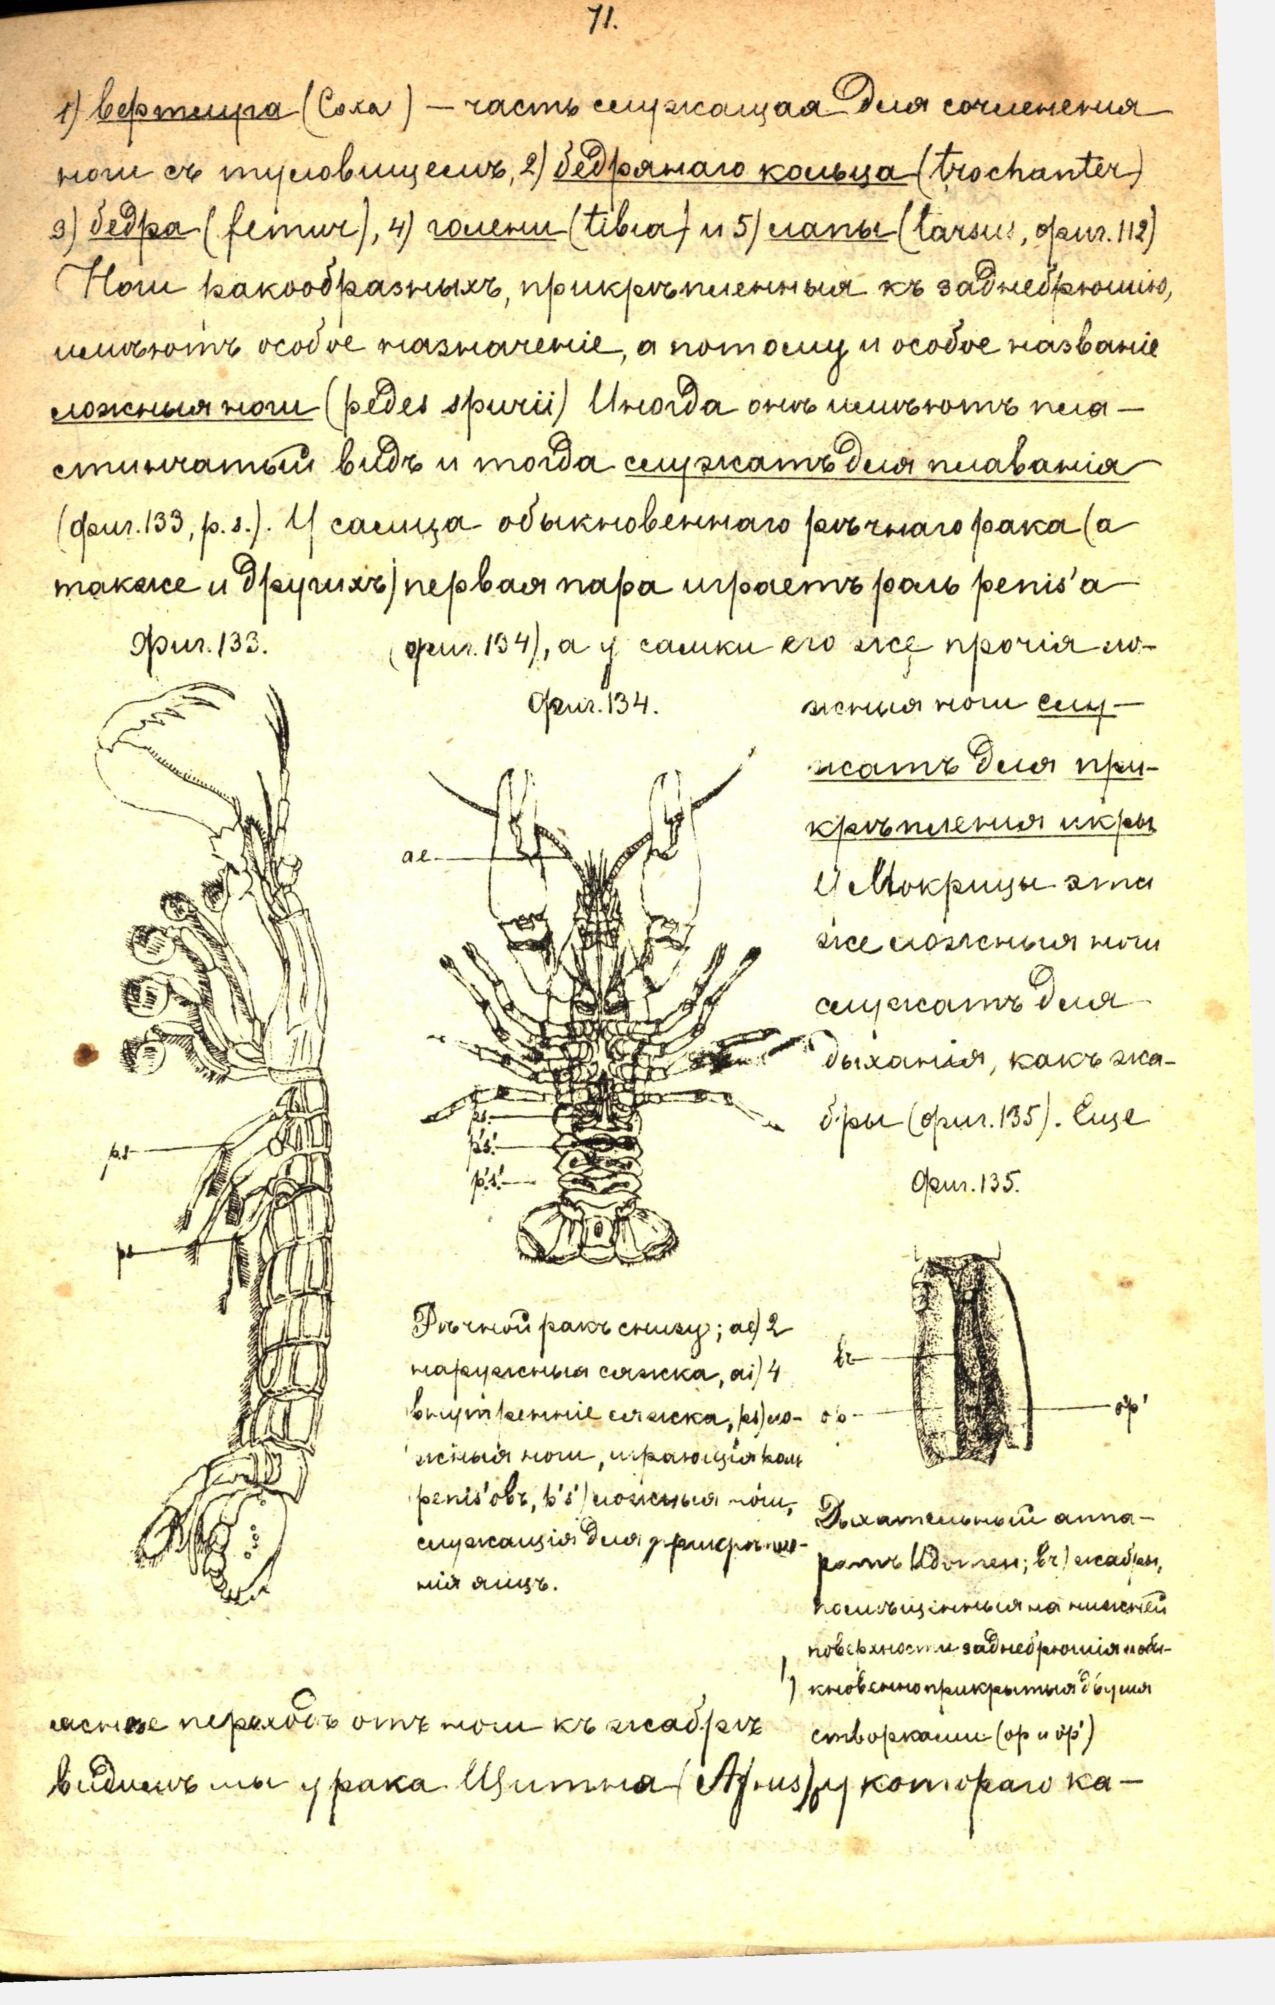 71.
1) вертлуга (Coxa) — часть служащая для сочлененiя
ноги съ туловищемъ, 2) бедрянаго кольца (trochanter)
3) бедра (femur), 4) голени (tibia) и 5) лапы (tarsus, фиг. 112)
Ноги ракообразныхъ, прикрѣпленныя къ заднебрюшiю,
имѣютъ особое назначенiе, а потому и особое названiе
ложныя ноги (pedes spurii) Иногда онѣ имѣютъ пла-
стинчатый видъ и тогда служатъ для плаванiя
(фиг. 133, p. s.). У самца обыкновеннаго рѣчнаго рака (а
также и другихъ) первая пара играетъ роль penis'a
Фиг. 133.
(фиг. 134), а у самки его же прочiя ло-
Фиг. 134.
жныя ноги слу-
жатъ для при-
крѣпленiя икры
У Мокрицы эти
же ложныя ноги
служатъ для
дыханiя, какъ жа-
бры (фиг. 135). Еще
ae
ps
p's'
p's'
p.s
ps
Фиг. 135.
br
op
op'
Рѣчной ракъ снизу; ae) 2
наружныя сяжка, ai) 4
внутреннiе сяжка, ps) ло-
жныя ноги, играющiя роль
penis'овъ, p's') ложныя ноги,
служащiя для прикрѣпле-
нiя яицъ.
Дыхательный аппа-
ратъ Идотеи; br) жабры,
помѣщенныя на нижней
поверхности заднебрюшiя и обы-
кновенно прикрытыя двумя
створками (op и op')
яснѣе переходъ отъ ноги къ жабрѣ
видимъ мы у рака Щитня (Apus), у котораго ка-